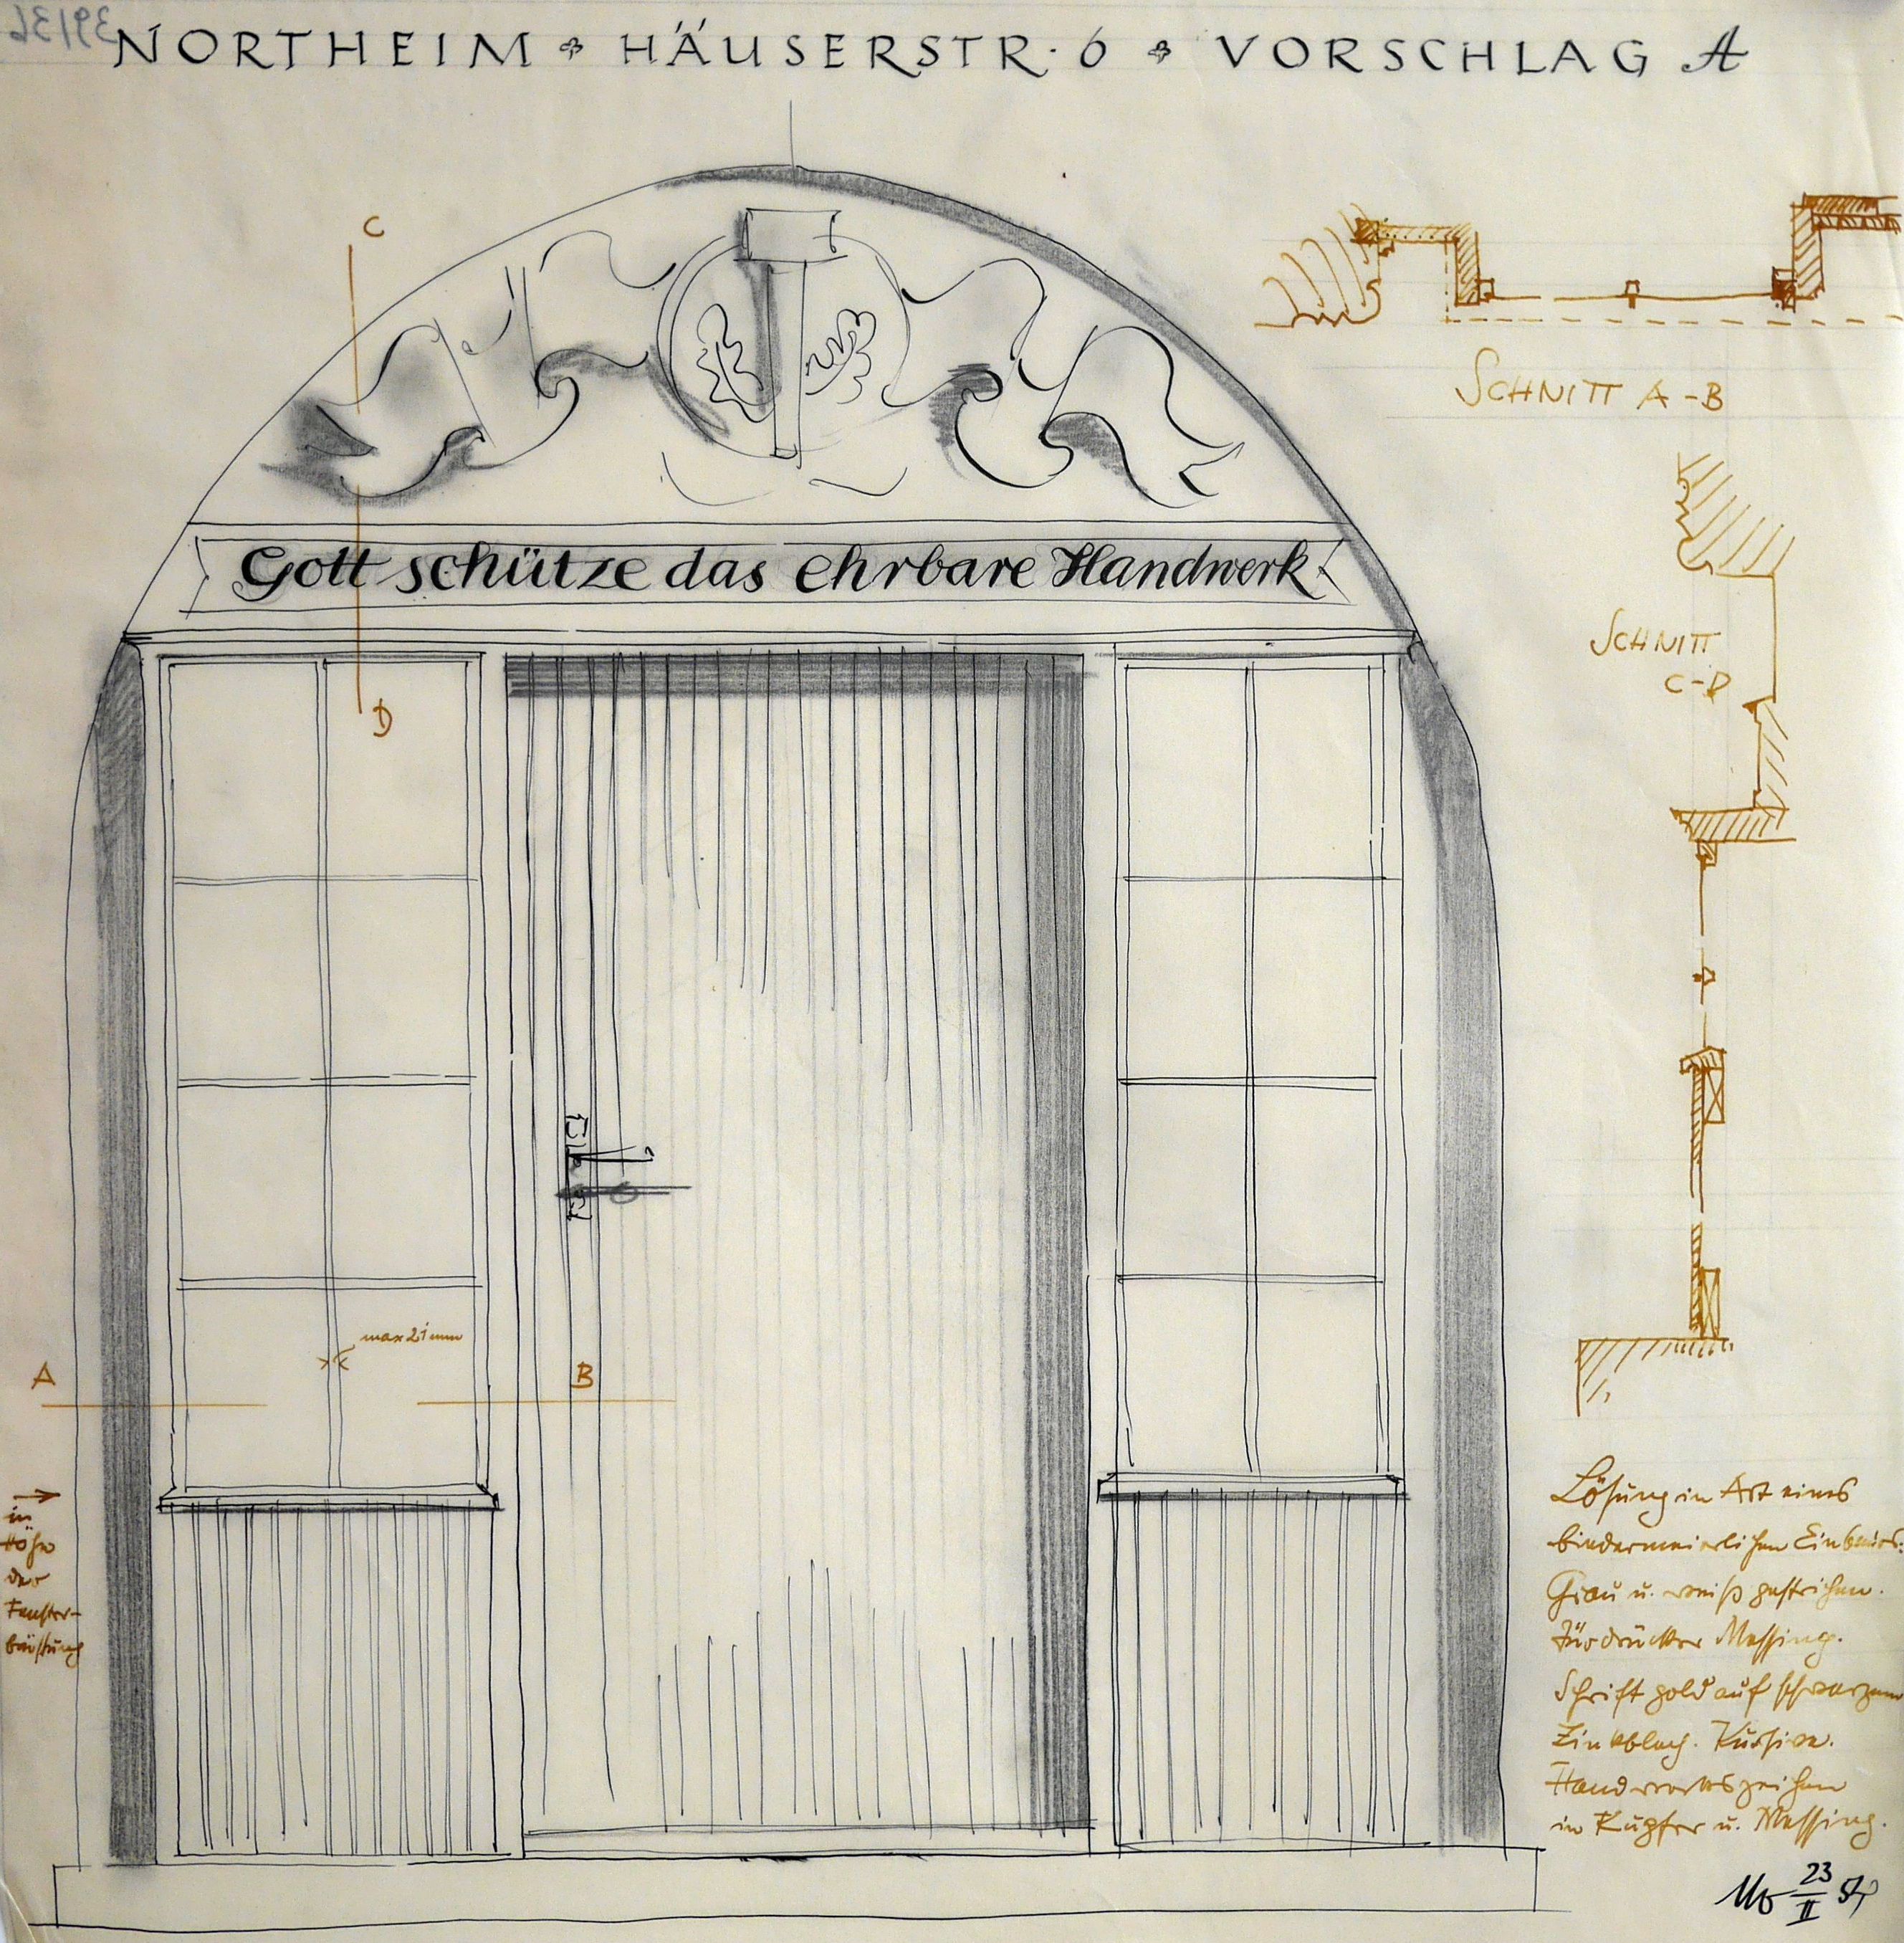 39136
NORTHEIM HÄUSERSTR. 6 VORSCHLAG A
C
Gott schütze das ehrbare Handwerk
D
SCHNITT A-B
SCHNITT
C-D
max 21 mm
A
B
in
Höhe
der
Fenster-
brüstung
Lösung in Art eines
biedermeierlichen Einbaus:
Grau u. weiß gestrichen.
Türdrücker Messing.
Schrift gold auf schwarzem
Zinkblech. Kursive.
Handwerkszeichen
in Kupfer u. Messing.
23
II